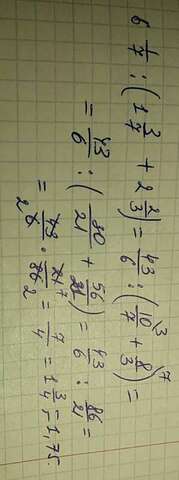 6 1/7 : (1 3/7 + 2 2/3) = 43/6 : (10/7 + 8/3) =
= 43/6 : (30/21 + 56/21) = 43/6 : 86/21 =
= 43/6 · 21/86 = 7/4 = 1 3/4 = 1,75.